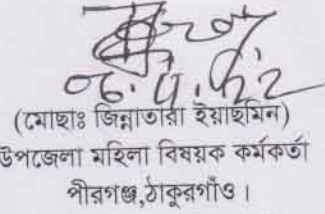 (মোছাঃ জিন্নাতারা ইয়াছমিন)
উপজেলা মহিলা বিষয়ক কর্মকর্তা
পীরগঞ্জ,ঠাকুরগাঁও।